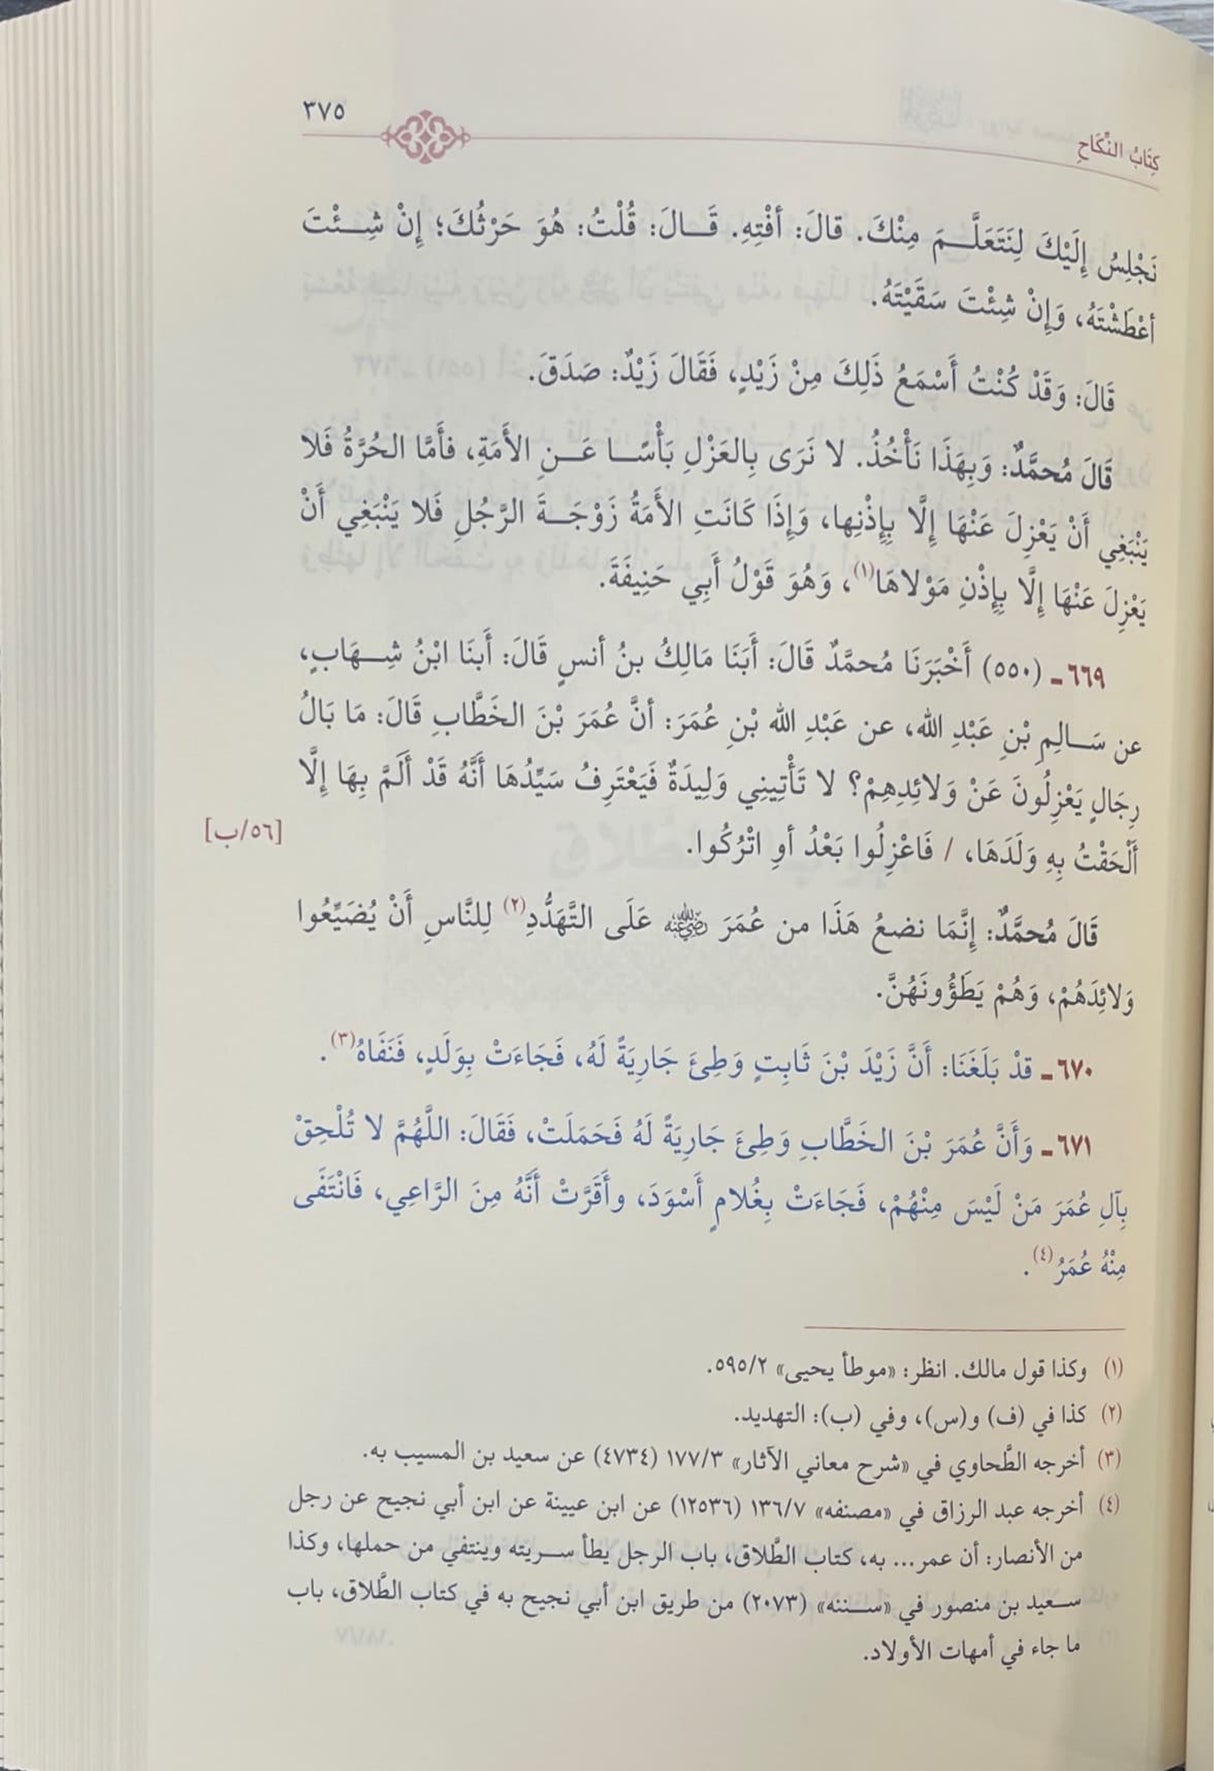 ٣٧٥
كِتَابُ النِّكَاحِ
نَجْلِسُ إِلَيْكَ لِنَتَعَلَّمَ مِنْكَ. قالَ: أفْتِهِ. قَالَ: قُلْتُ: هُوَ حَرْثُكَ؛ إِنْ شِئْتَ
أعْطَشْتَهُ، وَإِنْ شِئْتَ سَقَيْتَهُ.
قَالَ: وَقَدْ كُنْتُ أَسْمَعُ ذَلِكَ مِنْ زَيْدٍ، فَقَالَ زَيْدٌ: صَدَقَ.
قَالَ مُحمَّدٌ: وَبِهَذَا نَأْخُذُ. لا نَرَى بِالعَزْلِ بَأْسًا عَنِ الأَمَةِ، فأَمَّا الحُرَّةُ فَلا
يَنْبَغِي أَنْ يَعْزِلَ عَنْهَا إِلَّا بِإِذْنِها، وَإِذَا كَانَتِ الأَمَةُ زَوْجَةَ الرَّجُلِ فَلا يَنْبَغِي أَنْ
يَعْزِلَ عَنْهَا إِلَّا بِإِذْنِ مَوْلاهَا(١)، وَهُوَ قَوْلُ أَبِي حَنِيفَةَ.
٦٦٩ـ (٥٥٠) أَخْبَرَنَا مُحمَّدٌ قَالَ: أَبَنَا مَالِكُ بنُ أنسٍ قَالَ: أَبنَا ابْنُ شِهَابٍ،
عن سَالِمِ بْنِ عَبْدِ الله، عن عَبْدِ الله بْنِ عُمَرَ: أنَّ عُمَرَ بْنَ الخَطَّابِ قَالَ: مَا بَالُ
رِجَالٍ يَعْزِلُونَ عَنْ وَلائِدِهِمْ؟ لا تَأْتِينِي وَلِيدَةٌ فَيَعْتَرِفُ سَيِّدُهَا أَنَّهُ قَدْ أَلَمَّ بِهَا إِلَّا
أَلْحَقْتُ بِهِ وَلَدَهَا، / فَاعْزِلُوا بَعْدُ أوِ اتْرُكُوا.
[٥٦/ب]
قَالَ مُحمَّدٌ: إِنَّمَا نضعُ هَذَا من عُمَرَ رضي الله عنه عَلَى التَّهَدُّدِ(٢) لِلنَّاسِ أَنْ يُضَيِّعُوا
وَلائِدَهُمْ، وَهُمْ يَطَؤُونَهُنَّ.
٦٧٠ـ قدْ بَلَغَنَا: أَنَّ زَيْدَ بْنَ ثَابِتٍ وَطِئَ جَارِيَةً لَهُ، فَجَاءَتْ بِوَلَدٍ، فَنَفَاهُ(٣).
٦٧١ـ وَأَنَّ عُمَرَ بْنَ الخَطَّابِ وَطِئَ جَارِيَةً لَهُ فَحَمَلَتْ، فَقَالَ: اللَّهُمَّ لا تُلْحِقْ
بِآلِ عُمَرَ مَنْ لَيْسَ مِنْهُمْ، فَجَاءَتْ بِغُلامٍ أَسْوَدَ، وأَقَرَّتْ أَنَّهُ مِنَ الرَّاعِي، فَانْتَفَى
مِنْهُ عُمَرُ(٤).
(١) وكذا قول مالك. انظر: «موطأ يحيى» ٥٩٥/٢.
(٢) كذا في (ف) و(س)، وفي (ب): التهديد.
(٣) أخرجه الطَّحاوي في «شرح معاني الآثار» ١٧٧/٣ (٤٧٣٤) عن سعيد بن المسيب به.
(٤) أخرجه عبد الرزاق في «مصنفه» ١٣٦/٧ (١٢٥٣٦) عن ابن عيينة عن ابن أبي نجيح عن رجل
من الأنصار: أن عمر... به، كتاب الطَّلاق، باب الرجل يطأ سريته وينتفي من حملها، وكذا
سعيد بن منصور في «سننه» (٢٠٧٣) من طريق ابن أبي نجيح به في كتاب الطَّلاق، باب
ما جاء في أمهات الأولاد.